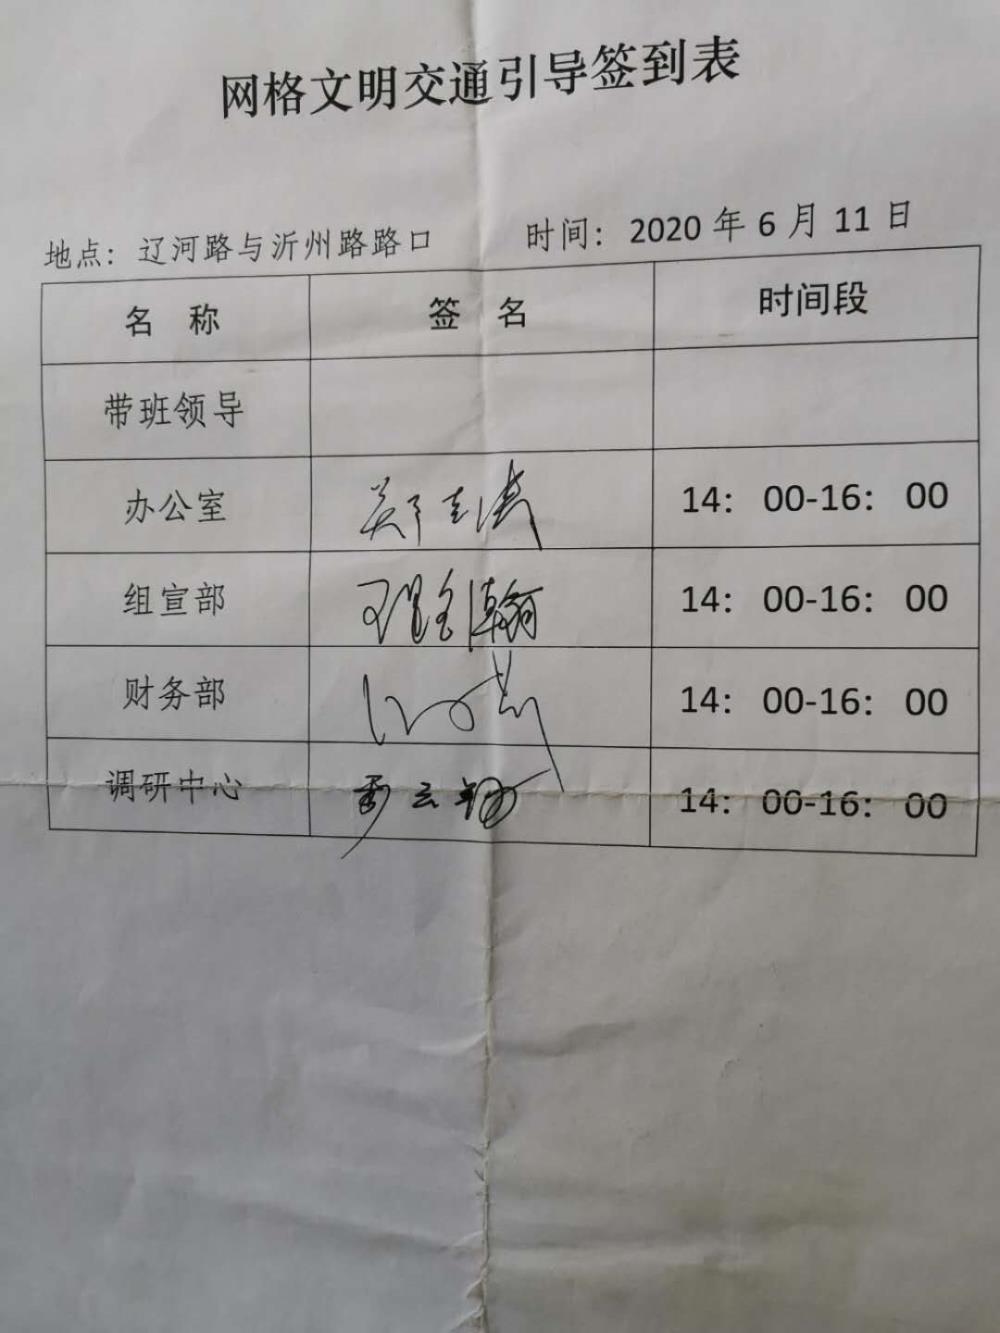 网格文明交通引导签到表
地点：辽河路与沂州路路口 时间：2020 年 6 月 11 日
名 称 签 名 时间段
带班领导
办公室 14：00-16：00
组宣部 14：00-16：00
财务部 14：00-16：00
调研中心 14：00-16：00